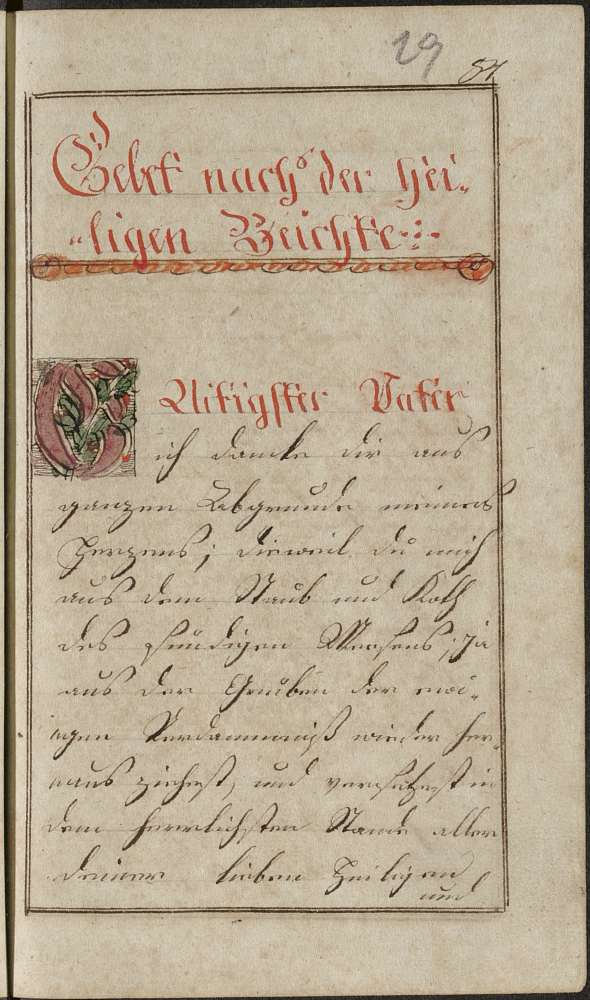 29
81
Gebet nach der Hei-
-ligen Beichte
Gütigster Vater
ich dancke dir aus
ganzen Abgrunde meines
Herzens; dieweil du mich
aus dem Staub und Koth
des sündigen Wesens, ja
aus der Gruben der ewi-
gen Verdammniß wieder her-
aus ziehest, und versetzest in
dem herrlichsten Stande aller
deiner lieben Heiligen
und